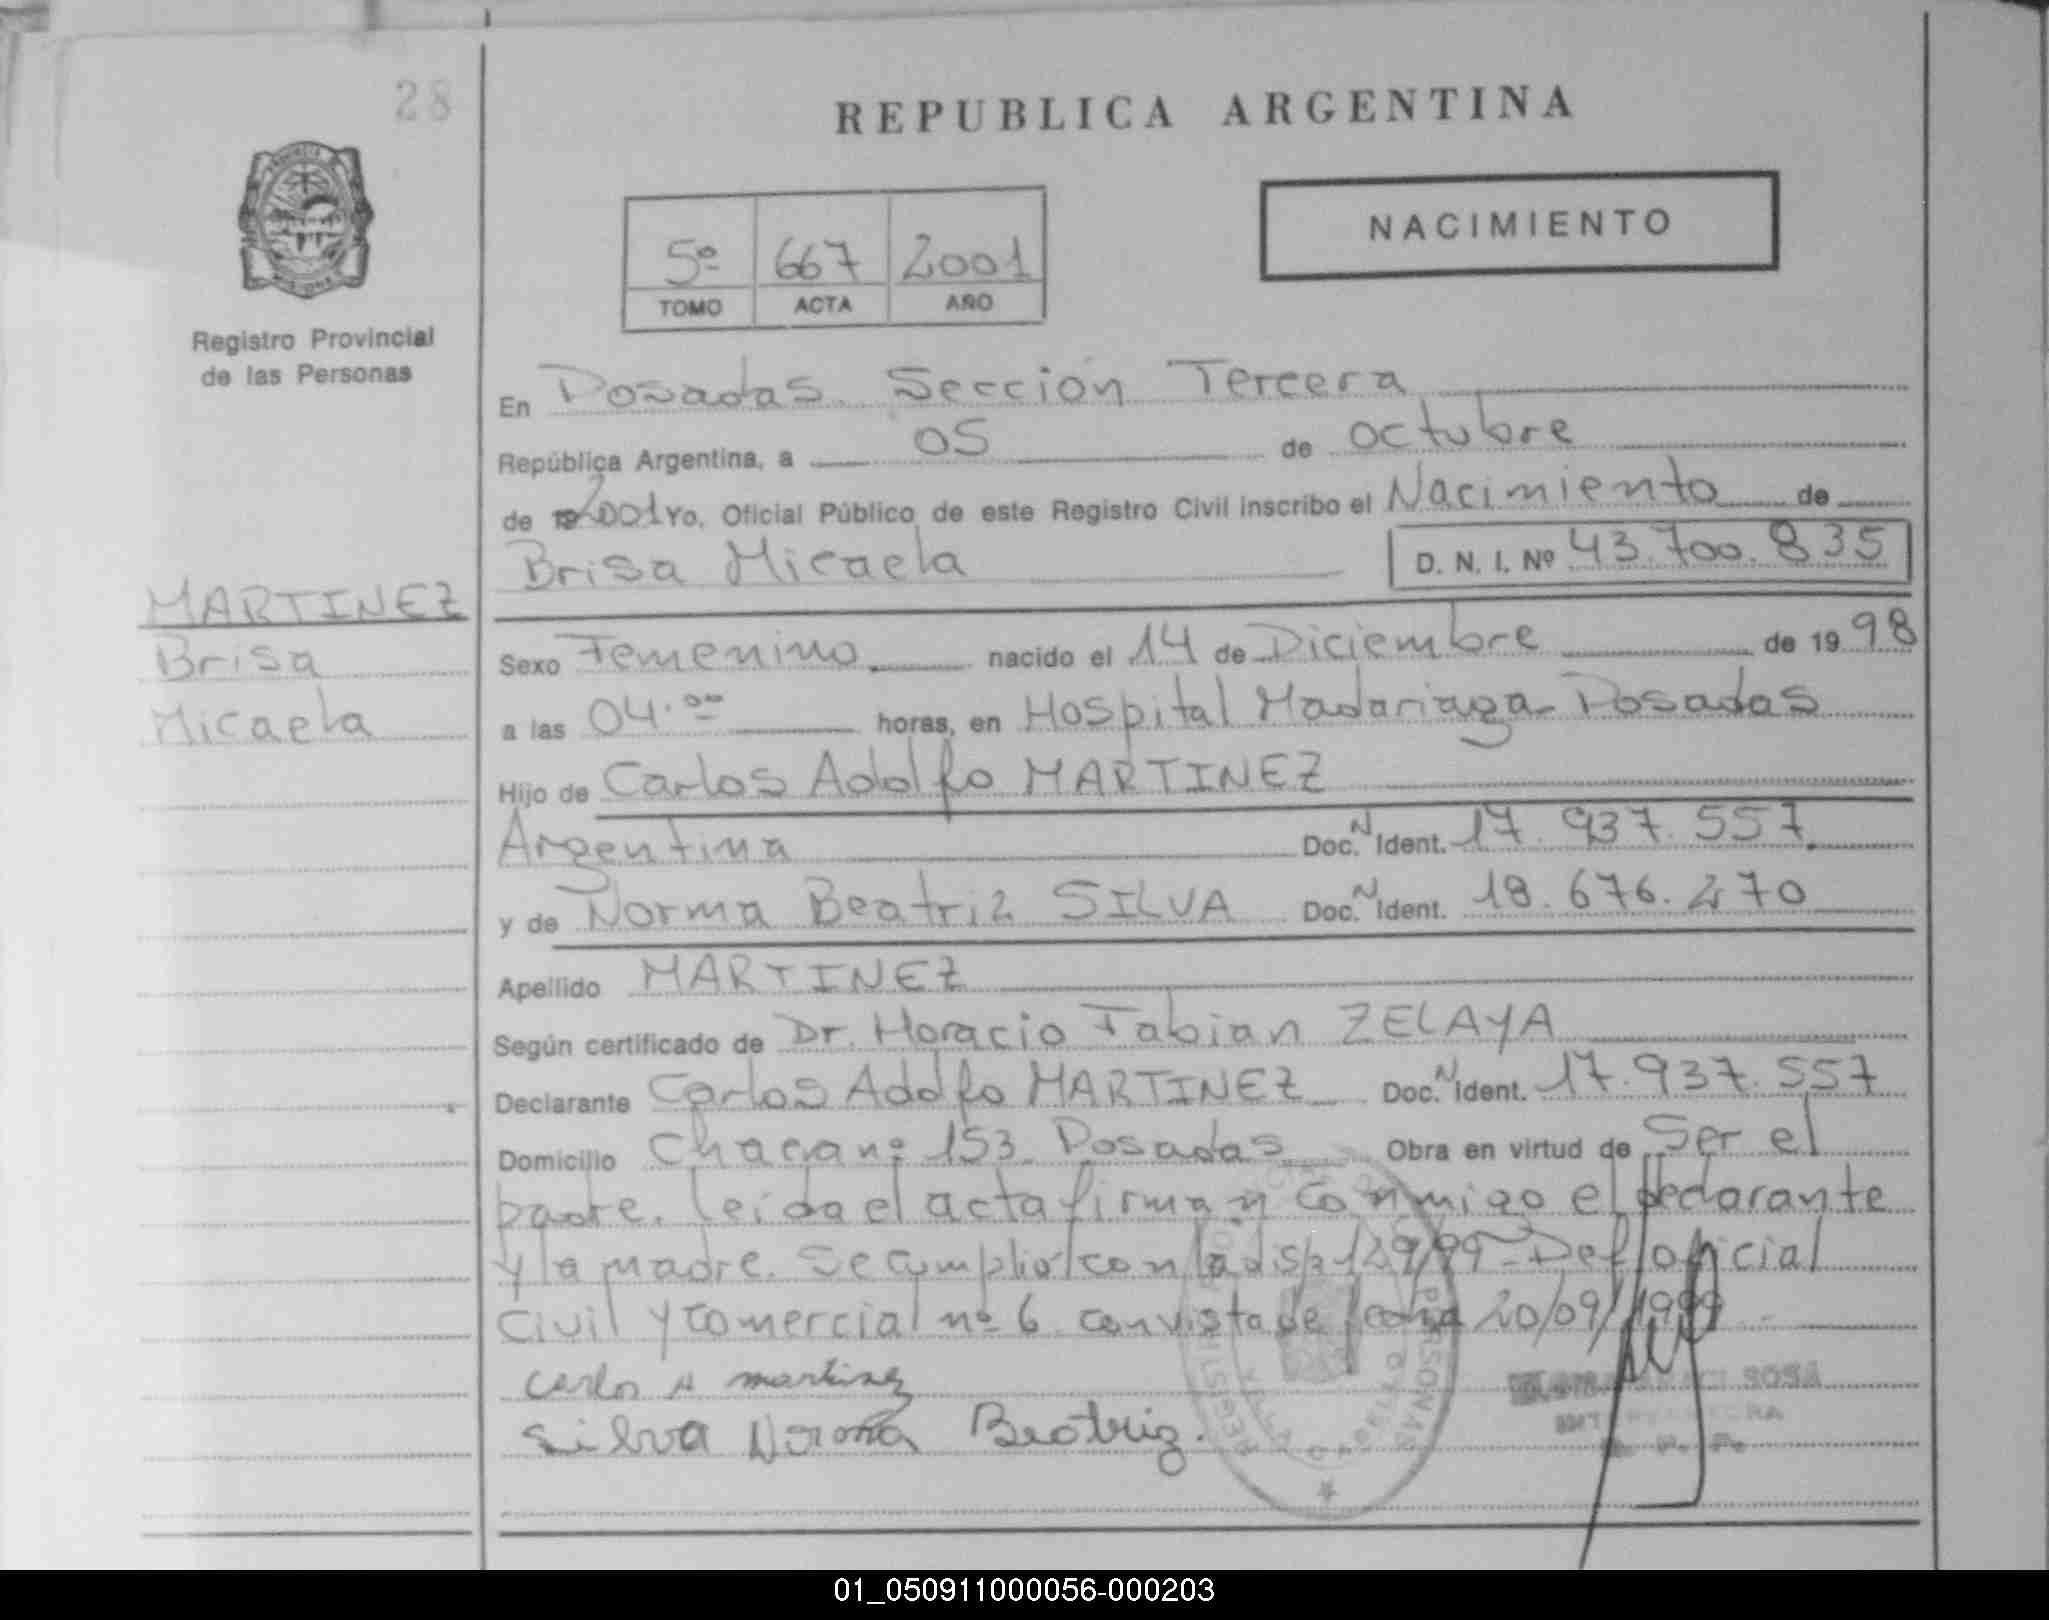 28
REPUBLICA ARGENTINA
NACIMIENTO
5º 667 2001
TOMO ACTA AÑO
Registro Provincial
de las Personas
En Posadas Sección Tercera
República Argentina, a 05 de octubre
de 2001 Yo, Oficial Público de este Registro Civil inscribo el Nacimiento de
Brisa Micaela D. N. I. Nº 43.700.835
MARTINEZ
Brisa
Micaela
Sexo Femenino nacido el 14 de Diciembre de 19 98
a las 04.00 horas, en Hospital Madariaga - Posadas
Hijo de Carlos Adolfo MARTINEZ
Argentina Doc. N Ident. 17.937.557
y de Norma Beatriz SILVA Doc. N Ident. 18.676.270
Apellido MARTINEZ
Según certificado de Dr. Horacio Fabian ZELAYA
Declarante Carlos Adolfo MARTINEZ Doc. N Ident. 17.937.557
Domicilio Chacra nº 153 Posadas Obra en virtud de Ser el
padre. Leida el acta firman conmigo el declarante
y la madre. Se cumplió con la disp 129/99 - Def oficial
Civil y Comercial nº 6 con vista de fecha 20/09/1999
Carlos A martinez
Silva Norma Beatriz.
SOSA
R. P. P.
REGISTRO PERSONAS
01_050911000056-000203